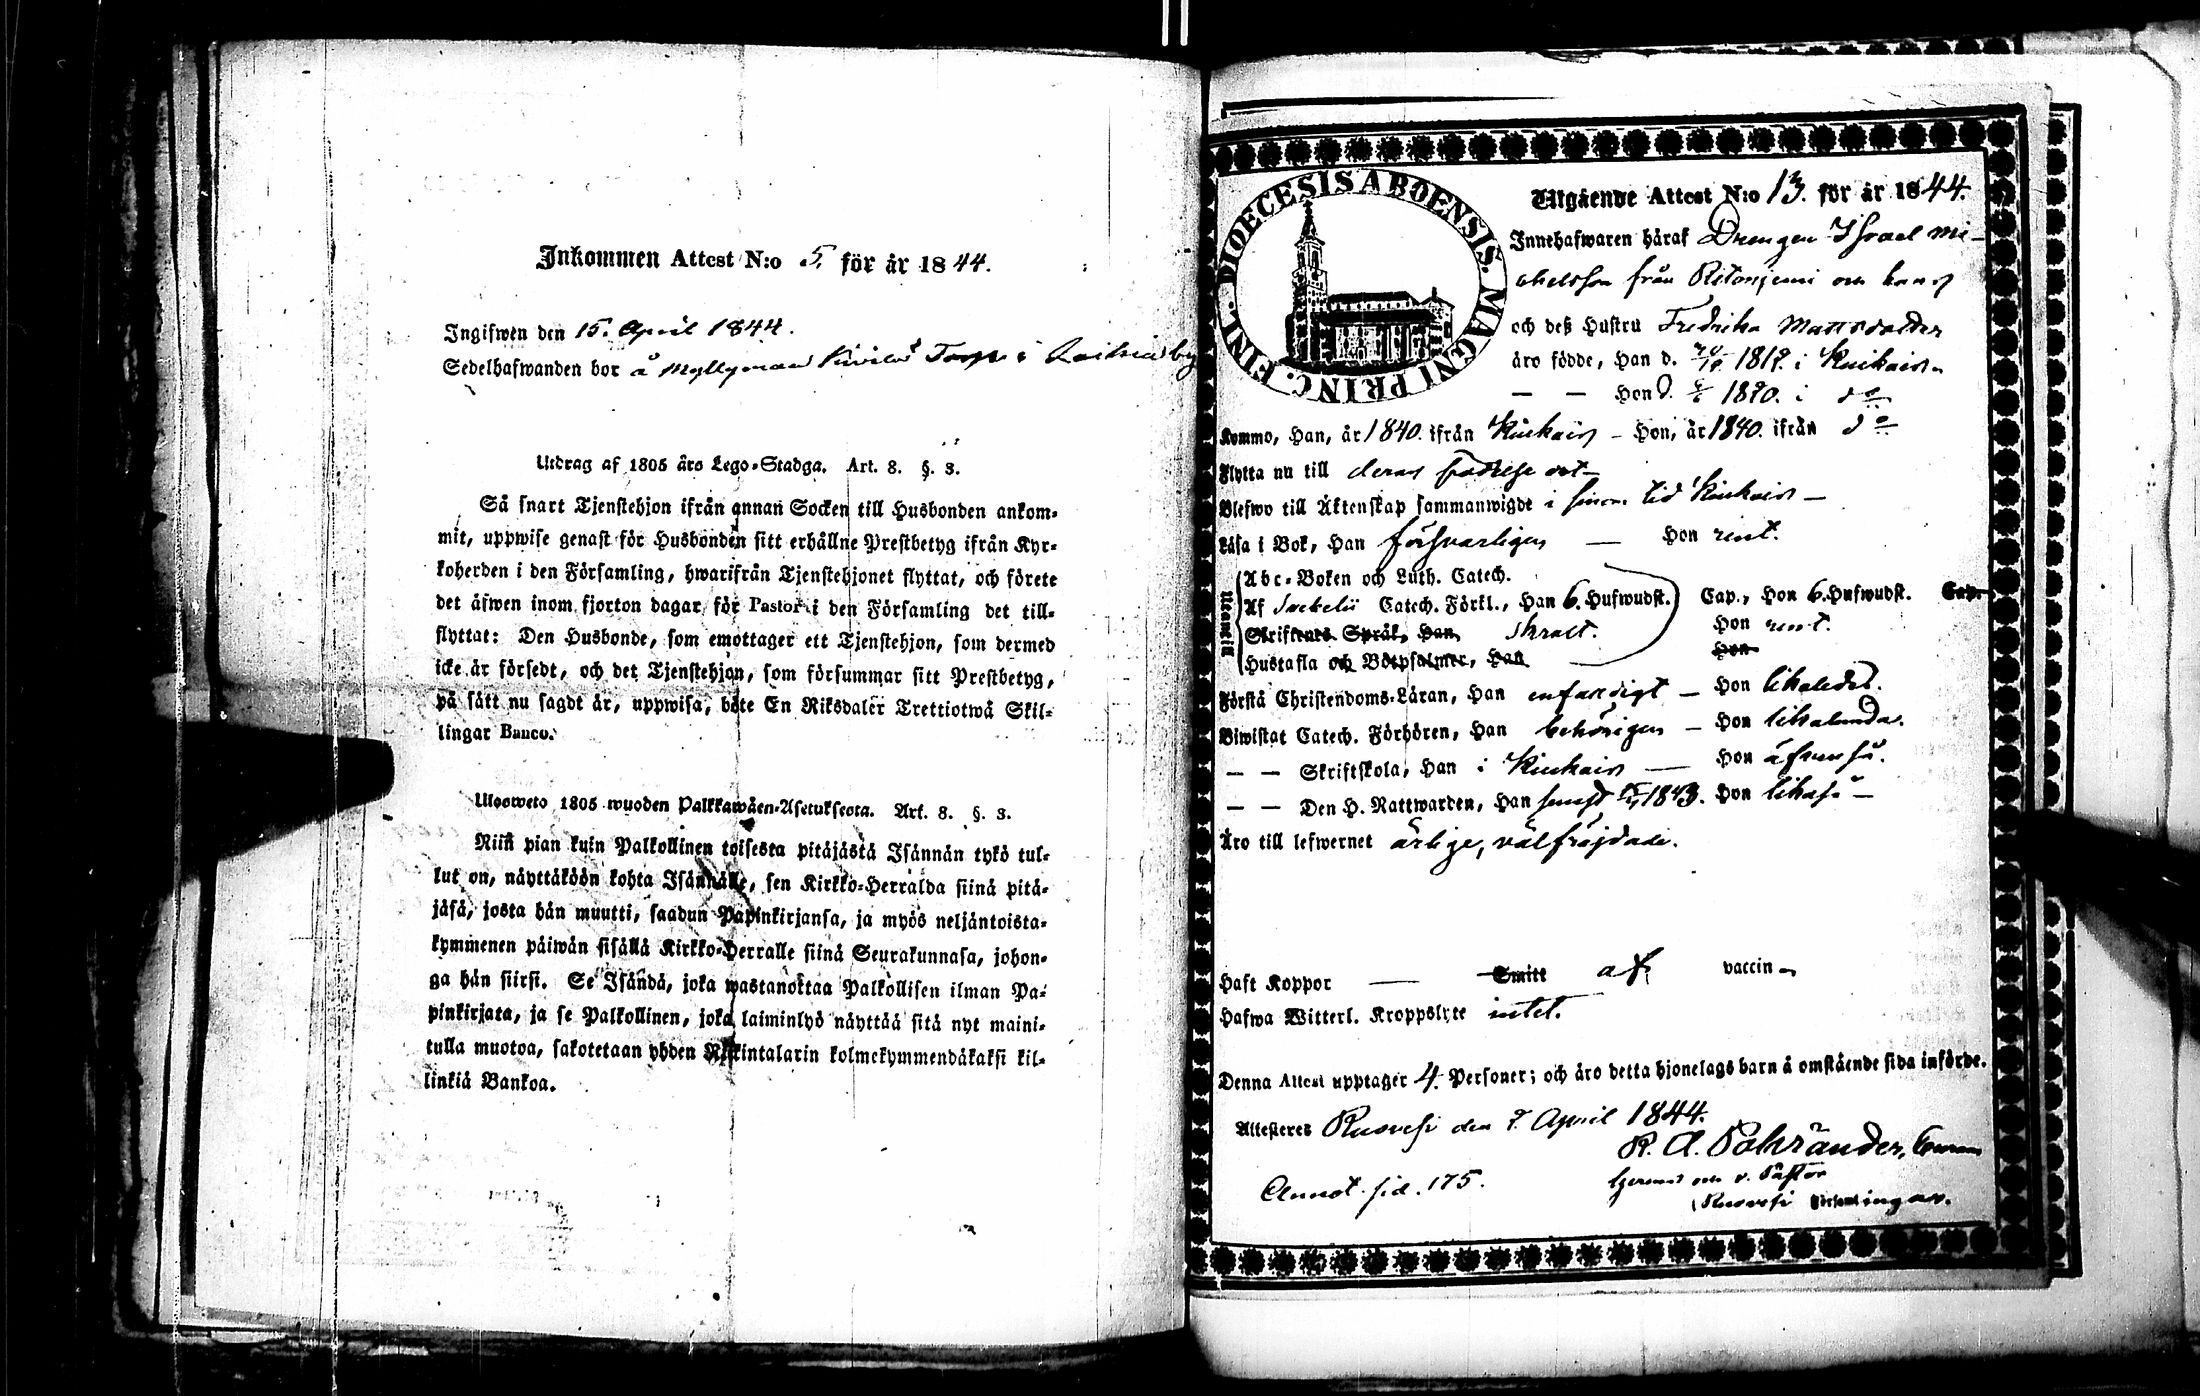 Inkommen Attest N:o 5. för år 1844.
Ingifwen den 15. April 1844.
Sedelhafwanden bor å Myllymaa Torp i by
Utdrag af 1805 års Lego-Stadga. Art. 8. §. 3.
Så snart Tjenstehjon ifrån annan Socken till Husbonden ankom-
mit, uppwise genast för Husbonden sitt erhållne Prestbetyg ifrån Kyr-
koherden i den Församling, hwarifrån Tjenstehjonet flyttat, och förete
det äfwen inom fjorton dagar för Pastor i den Församling det till-
flyttat: Den Husbonde, som emottager ett Tjenstehjon, som dermed
icke är försedt, och det Tjenstehjon, som försummar sitt Prestbetyg,
på sätt nu sagdt är, uppwisa, böte En Riksdaler Trettiotwå Skil-
lingar Banco.
Ulosweto 1805 wuoden Palkkawäen-Asetuksesta. Art. 8. §. 3.
Niin pian kuin Palkollinen toisesta pitäjästä Isännän tykö tul-
lut on, näyttäköön kohta Isännälle, sen Kirkko-Herralda siinä pitä-
jäsä, josta hän muutti, saadun Papinkirjansa, ja myös neljäntoista-
kymmenen päiwän sisällä Kirkko-Herralle siinä Seurakunnasa, johon-
ga hän siirsi. Se Isändä, joka wastanottaa Palkollisen ilman Pa-
pinkirjata, ja se Palkollinen, joka laiminlyö näyttää sitä nyt maini-
tulla muotoa, sakotetaan yhden Riikintalarin kolmekymmendäkaksi kil-
linkiä Bankoa.
DIOECESIS ABOENSIS. MAGNI PRINC. FINL.
Utgående Attest N:o 13. för år 1844.
Innehafwaren häraf Drengen Israel Mi-
chelsson från Ritoniemi och hans
och deß Hustru Fredrika Mattsdotter
äro födde, Han d. i Kiukais
— — Hon d. 1820. i do
Kommo, Han, år 1840. ifrån Kiukais – Hon, år 1840. ifrån do
Flytta nu till deras födelse ort –
Blefwo till Äktenskap sammanwigde i sinom tid Kiukais –
Läsa i Bok, Han försvarligen — Hon rent.
Utanetill
Abc-Boken och Luth. Catech.
Af Svebelii Catech. Förkl., Han 6. Hufwudst. Cap., Hon 6. Hufwudst. Cap.
Skriftenes Språk, Han Hon rent.
Hustafla och Botpsalmer, Han Hon
Förstå Christendoms-Läran, Han enfaldigt – Hon likaledes.
Biwistat Catech. Förhören, Han behörigen – Hon likalunda.
— — Skriftskola, Han i Kiukais — Hon äfvenså.
— — Den H. Nattwarden, Han senast 1843. Hon likaså –
Äro till lefwernet ärlige, välfräjdade.
Haft Koppor — Smitt af vaccin
Hafwa Witterl. Kroppslyte intet.
Denna Attest upptager 4. Personer; och äro detta hjonelags barn å omstående sida införde.
Attesteres Ruovesi den 7. April 1844.
Annot. sid. 175.
och v. Pastor
Ruovesi Församlingar.